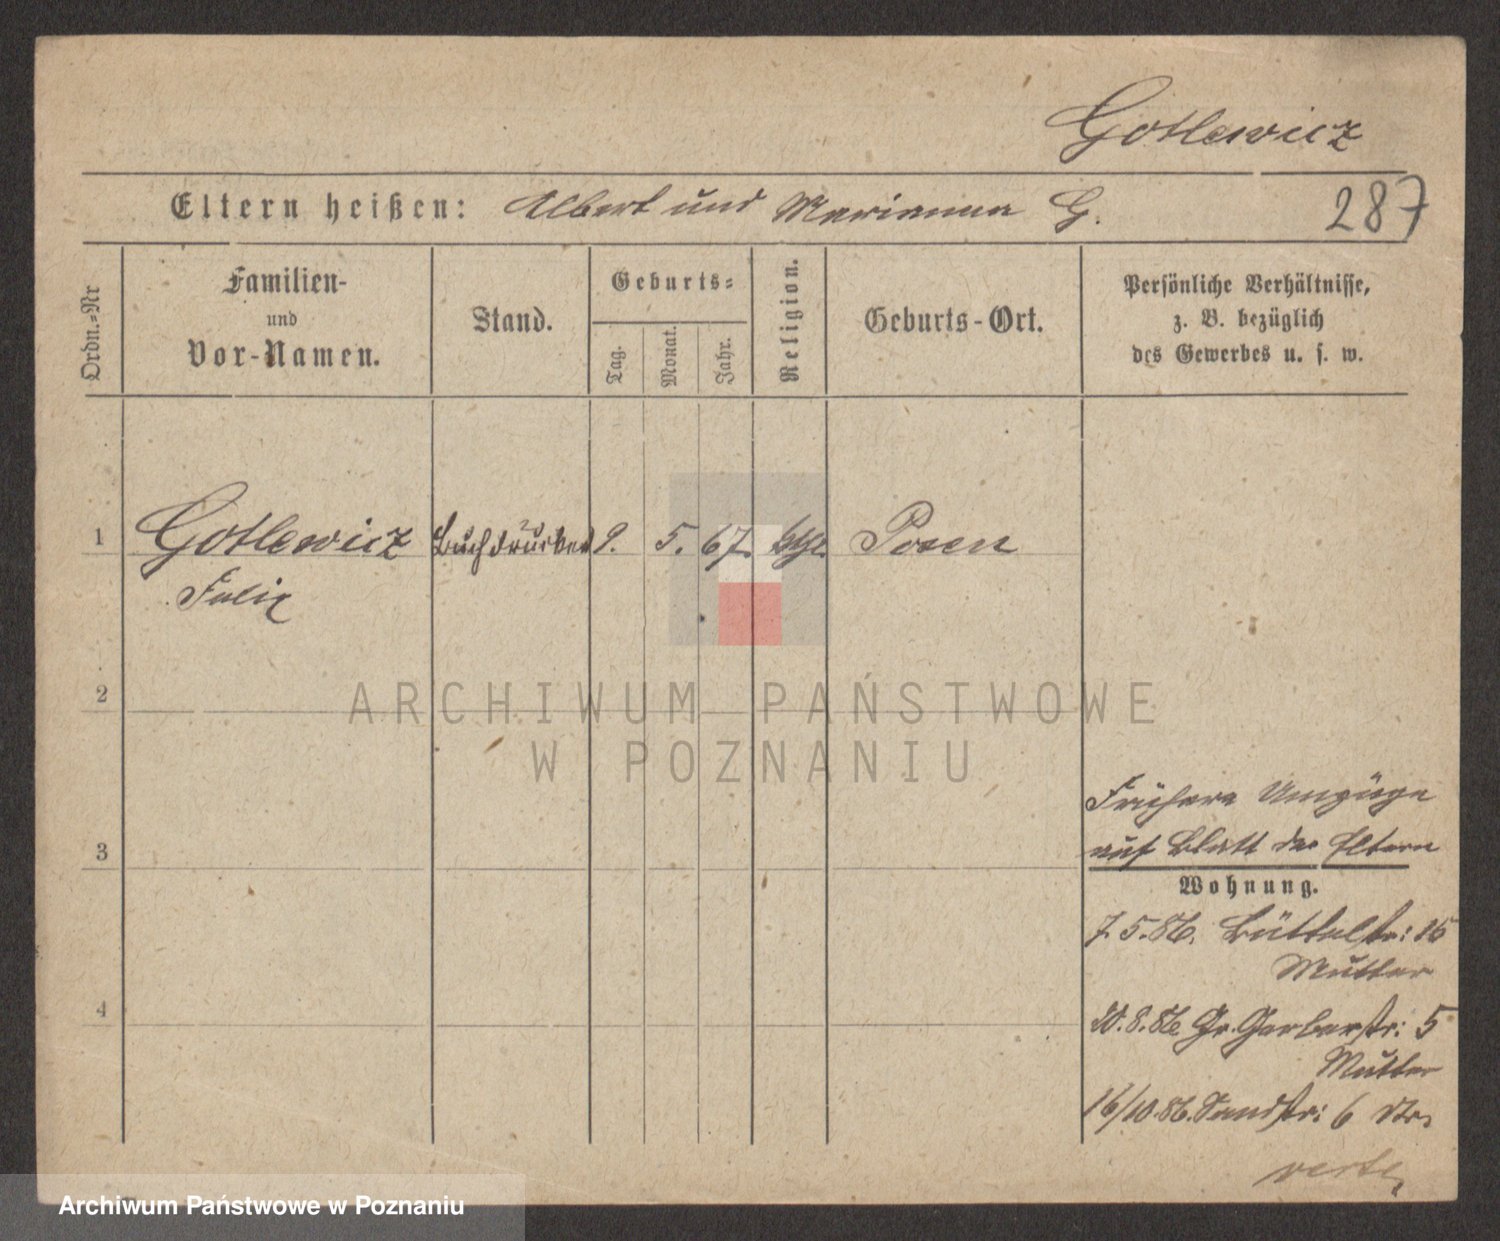 Gotlewicz
Eltern heißen: Albert und Marianna G.
287
Ordn.-Nr
Familien-
und
Vor-Namen.
Stand.
Geburts-
Tag.
Monat.
Jahr.
Religion.
Geburts-Ort.
Persönliche Verhältnisse,
z. B. bezüglich
des Gewerbes u. s. w.
1
Gotlewicz Buchdrucker 9. 5. 67. kth. Posen
Felix
2
ARCHIWUM PAŃSTWOWE
W POZNANIU
3
Frühere Umzüge
auf Blatt der Eltern
Wohnung.
7.5.86. Büttelstr: 16
Mutter
4
8.86 Gr. Gerberstr: 5
Mutter
16/10.86. Sandstr: 6
verte
Archiwum Państwowe w Poznaniu